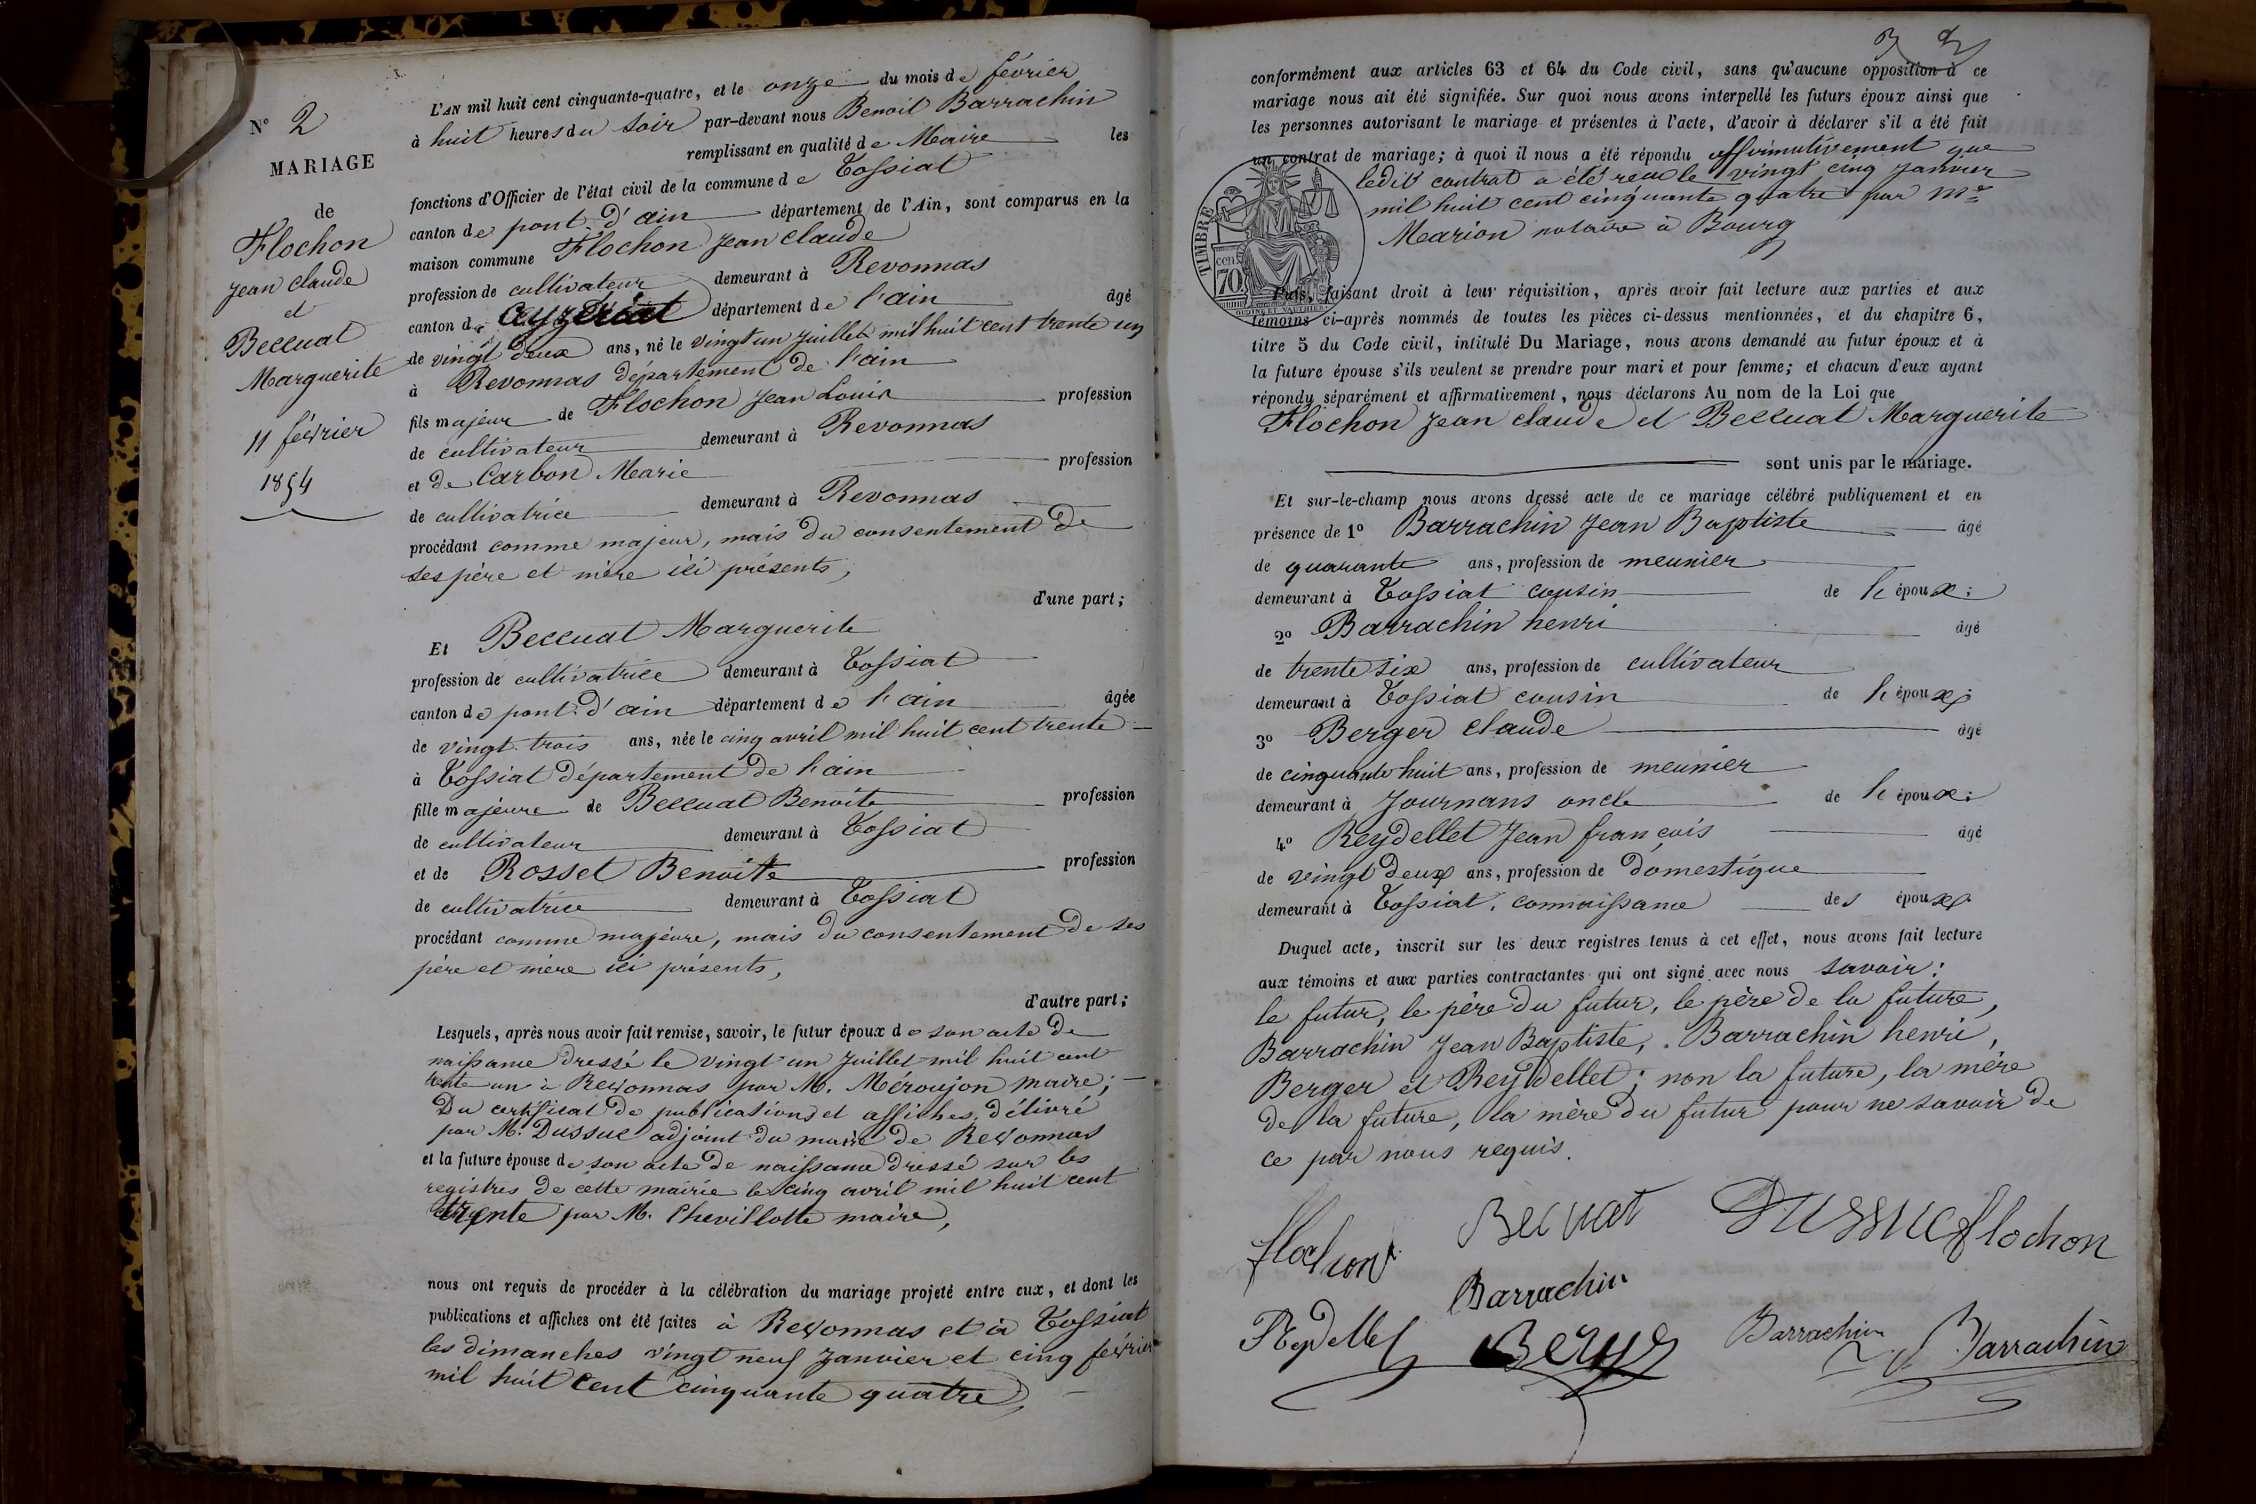 N° 2
MARIAGE
de
Flochon
Jean Claude
et
Beccuat
Marguerite
11 février
1854
L'AN mil huit cent cinquante-quatre, et le onze du mois de février
à huit heures du soir par-devant nous Benoit Barrachin
remplissant en qualité de Maire les
fonctions d'Officier de l'état civil de la commune de Tossiat
canton de pont d'ain département de l'Ain, sont comparus en la
maison commune Flochon Jean Claude
profession de cultivateur demeurant à Revonnas
canton de Ceyzeriat département de l'ain âgé
de vingt deux ans, né le vingt un juillet mil huit cent trente un
à Revonnas département de l'ain
fils majeur de Flochon Jean Louis profession
de cultivateur demeurant à Revonnas
et de Carbon Marie profession
de cultivatrice demeurant à Revonnas
procédant comme majeur, mais du consentement de
ses père et mère ici présents,
d'une part;
Et Beccuat Marguerite
profession de cultivatrice demeurant à Tossiat
canton de pont d'ain département de l'ain âgée
de vingt trois ans, née le cinq avril mil huit cent trente
à Tossiat département de l'ain
fille majeure de Beccuat Benoite profession
de cultivateur demeurant à Tossiat
et de Rosset Benoite profession
de cultivatrice demeurant à Tossiat
procédant comme majeure, mais du consentement de ses
père et mère ici présents,
d'autre part;
Lesquels, après nous avoir fait remise, savoir, le futur époux de son acte de
naissance dressé le vingt un juillet mil huit cent
trente un à Revonnas par M. Méroujon maire;
Du certificat de publications et affiches, délivré
par M. Dussuc adjoint du maire de Revonnas
et la future épouse de son acte de naissance dressé sur les
registres de cette mairie le cinq avril mil huit cent
trente par M. Chevillotte maire,
nous ont requis de procéder à la célébration du mariage projeté entre eux, et dont les
publications et affiches ont été faites à Revonnas et à Tossiat
les dimanches vingt neuf Janvier et cinq février
mil huit cent cinquante quatre
conformément aux articles 63 et 64 du Code civil, sans qu'aucune opposition à ce
mariage nous ait été signifiée. Sur quoi nous avons interpellé les futurs époux ainsi que
les personnes autorisant le mariage et présentes à l'acte, d'avoir à déclarer s'il a été fait
un contrat de mariage; à quoi il nous a été répondu affirmativement que
ledit contrat a été reçu le vingt cinq Janvier
mil huit cent cinquante quatre par Me
Marion notaire à Bourg
TIMBRE
70 cen
OUDINÉ ET VAUTHIER
Puis, faisant droit à leur réquisition, après avoir fait lecture aux parties et aux
témoins ci-après nommés de toutes les pièces ci-dessus mentionnées, et du chapitre 6,
titre 5 du Code civil, intitulé Du Mariage, nous avons demandé au futur époux et à
la future épouse s'ils veulent se prendre pour mari et pour femme; et chacun d'eux ayant
répondu séparément et affirmativement, nous déclarons Au nom de la Loi que
Flochon Jean claude et Beccuat Marguerite
sont unis par le mariage.
Et sur-le-champ nous avons dressé acte de ce mariage célébré publiquement et en
présence de 1° Barrachin Jean Baptiste âgé
de quarante ans, profession de meunier
demeurant à Tossiat cousin de l'époux;
2° Barrachin henri âgé
de trente six ans, profession de cultivateur
demeurant à Tossiat cousin de l'époux;
3° Berger claude âgé
de cinquante huit ans, profession de meunier
demeurant à Journans oncle de l'époux;
4° Reydellet Jean françois âgé
de vingt deux ans, profession de domestique
demeurant à Tossiat, connaissance des époux.
Duquel acte, inscrit sur les deux registres tenus à cet effet, nous avons fait lecture
aux témoins et aux parties contractantes qui ont signé avec nous savoir:
le futur, le père du futur, le père de la future,
Barrachin Jean Baptiste, Barrachin henri,
Berger et Reydellet; non la future, la mère
de la future, la mère du futur pour ne savoir de
ce par nous requis.
flochon Becuat Dussuc flochon
Barrachin
Reydellet Berger Barrachin Barrachin